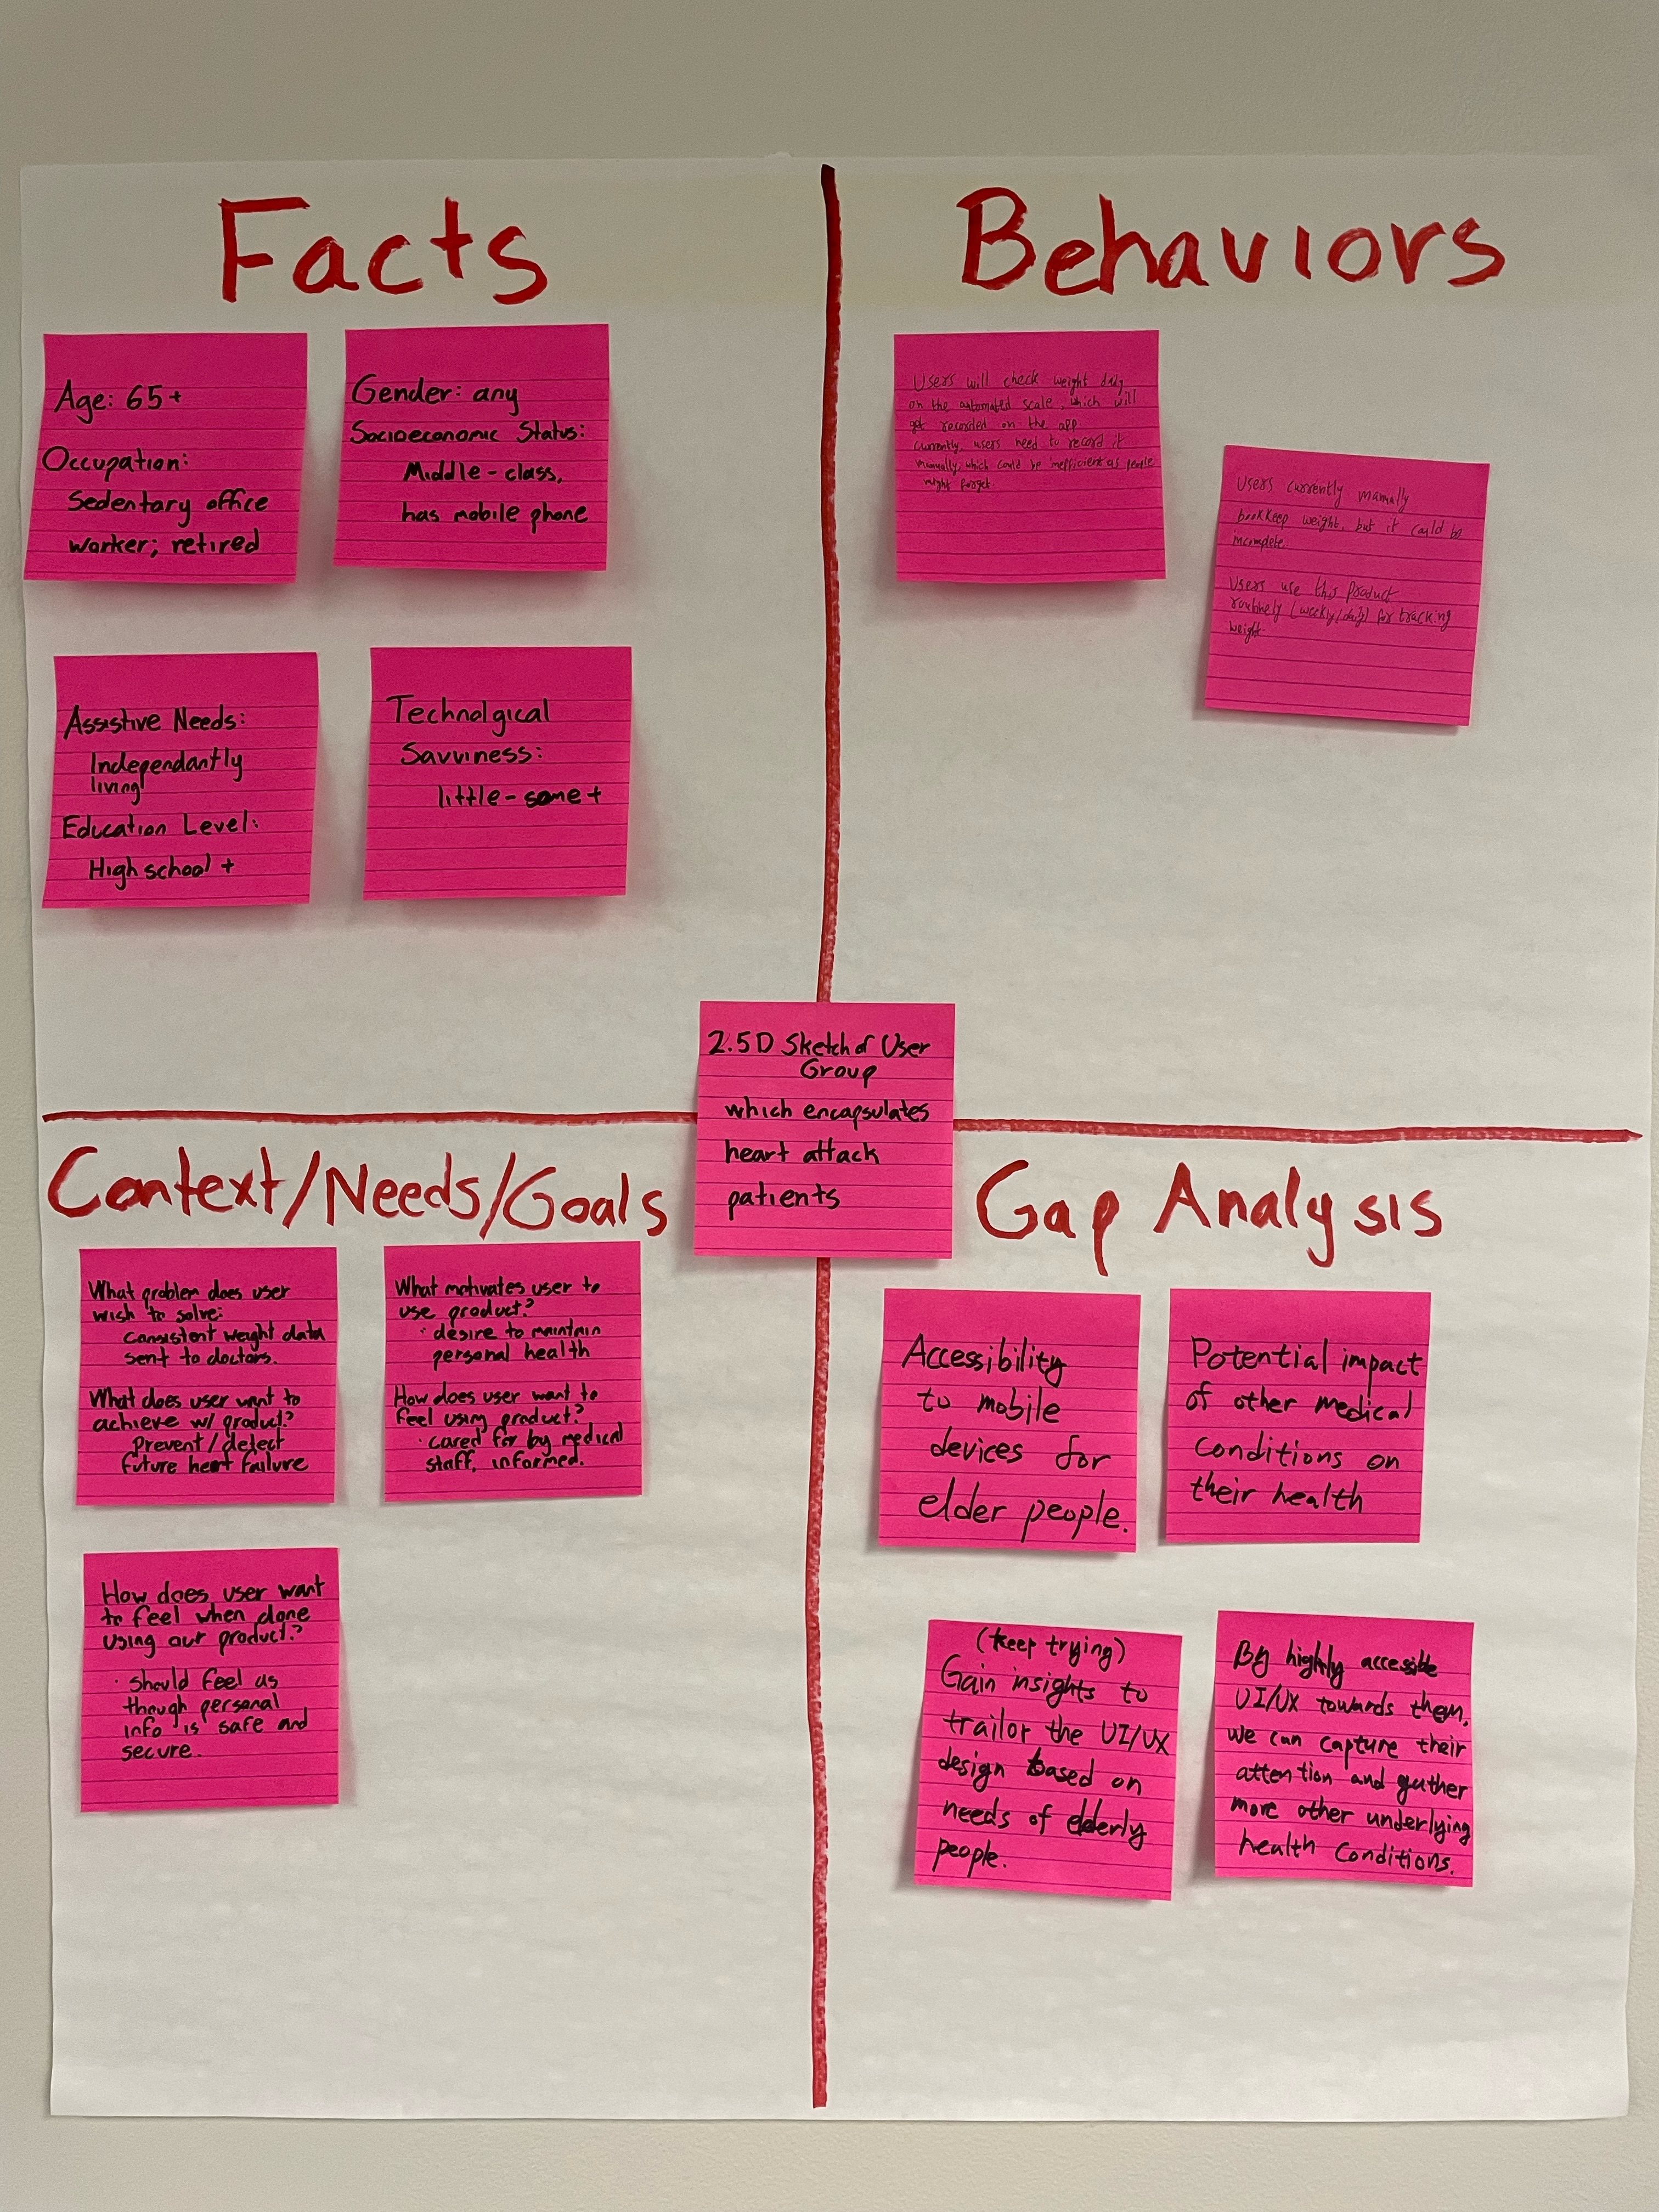 Facts
Age: 65+
Occupation:
Sedentary office
worker; retired
Gender: any
Socioeconomic Status:
Middle-class,
has mobile phone
Assistive Needs:
Independantly
living
Education Level:
High school +
Technolgical
Savviness:
little-some+
Behaviors
Users will check weight daily
on the automated scale, which will
get recorded on the app.
Currently, users need to record it
manually, which could be inefficient as people
might forget.
Users currently manually
bookkeep weight, but it could be
incomplete.
Users use this product
routinely (weekly/daily) for tracking
weight.
2.5D Sketch of User
Group
which encapsulates
heart attack
patients
Context/Needs/Goals
What problem does user
wish to solve:
consistent weight data
sent to doctors.
What does user want to
achieve w/ product?
Prevent/detect
future heart failure
What motivates user to
use product?
· desire to maintain
personal health
How does user want to
feel using product?
· cared for by medical
staff, informed.
How does user want
to feel when done
using our product?
· should feel as
though personal
info is safe and
secure.
Gap Analysis
Accessibility
to mobile
devices for
elder people.
Potential impact
of other medical
conditions on
their health
(keep trying)
Gain insights to
trailor the UI/UX
design based on
needs of elderly
people.
By highly accessible
UI/UX towards them,
we can capture their
attention and gather
more other underlying
health conditions.